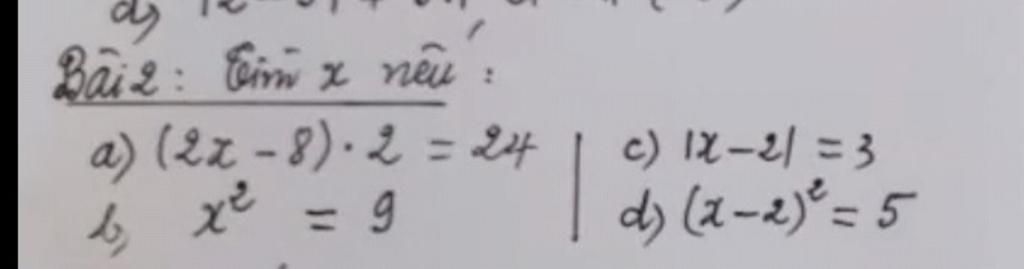 Bài 2: Tìm x nếu:
a) (2x - 8) · 2 = 24
b, x² = 9
c) |x - 2| = 3
d) (x - 2)² = 5